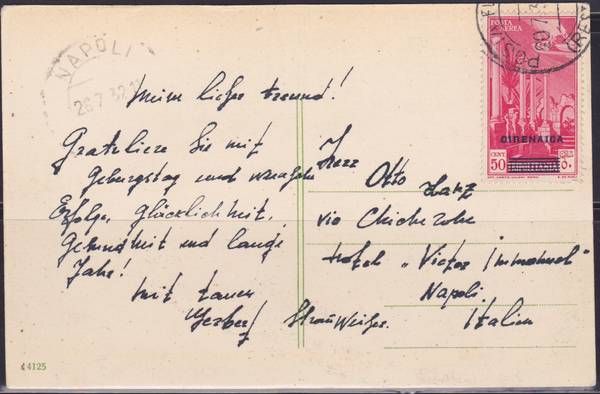 NAPOLI
26.7.32.11
POSTA AEREA
CIRENAICA
CENT. 50
Mein lieber Freund!
Gratuliere Sie mit
Geburgstag und wünsche
Erfolge, Glücklichkeit,
Gesundheit und lange
Jahre!
Mit
Herbert
Herr
Otto
via
Hotel „Victor Immanuel"
Napoli.
Italien
4125